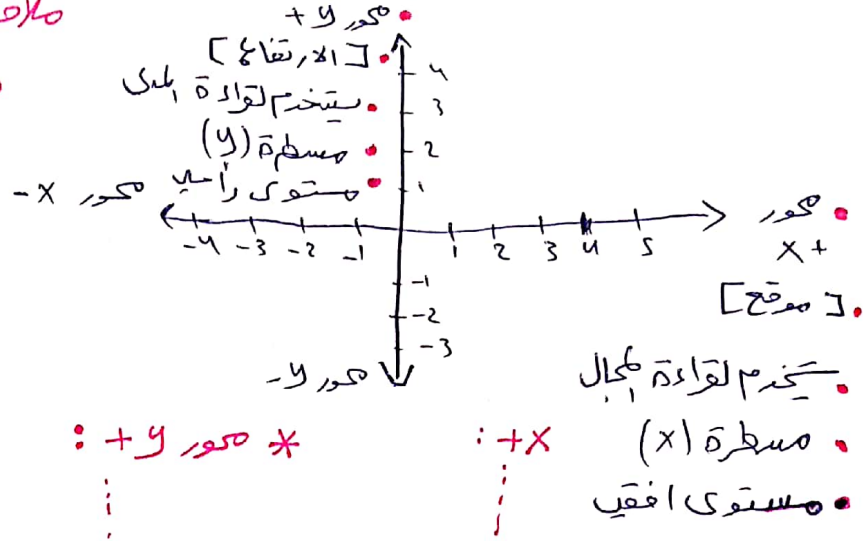 • محور y +
• [الارتفاع]
• يستخدم لقراءة المدى
• مسطرة (y)
• مستوى رأسي
محور x -
4
3
2
1
-4 -3 -2 -1 1 2 3 4 5
-1
-2
-3
محور y -
• محور
x +
• [موقع]
• يستخدم لقراءة المجال
• مسطرة (x)
• مستوى افقي
* محور y + :
+x :